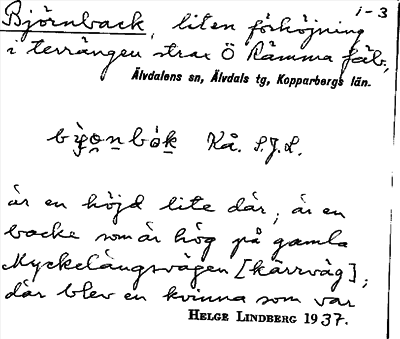 i-3
Björnback, liten förhöjning
i terrängen strax Ö Råmma fäb,
Älvdalens sn, Älvdals tg, Kopparbergs län.
Kå. S.J.L.
är en höjd lite där; är en
backe som är hög på gamla
Myckelängsvägen [kärrväg];
där blev en kvinna som var
HELGE LINDBERG 1937.